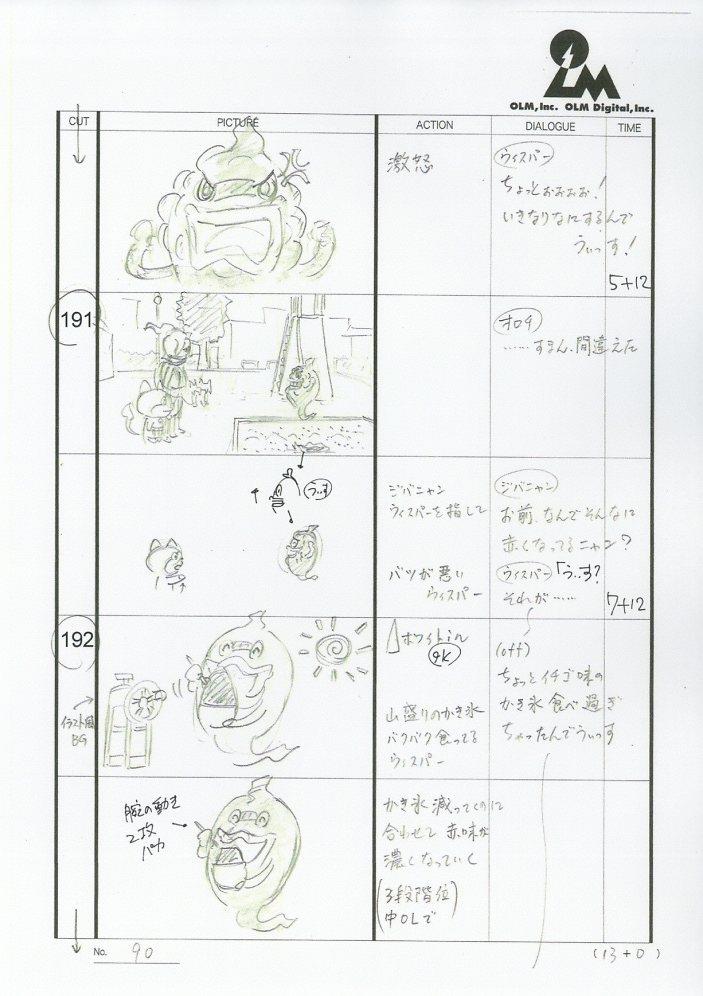 OLM, Inc. OLM Digital, Inc.
CUT PICTURE ACTION DIALOGUE TIME
激怒
ウィスパー
ちょっとぉぉぉぉ!
いきなりなにするんで
うぃっす!
5+12
191
オロチ
……すまん、間違えた
う…す
ジバニャン
ウィスパーを指して
ジバニャン
お前、なんでそんなに
赤くなってるニャン?
バツが悪い
ウィスパー
ウィスパー「う…す?
それが……
7+12
192
イラスト風
BG
ホワイトin
9K
山盛りのかき氷
バクバク食ってる
ウィスパー
(off)
ちょっとイチゴ味の
かき氷食べ過ぎ
ちゃったんでうぃっす
腕の動き
2攻
パカ
かき氷減ってくのに
合わせて赤味が
濃くなっていく
(3段階位
中OLで)
No. 90
(13+0)